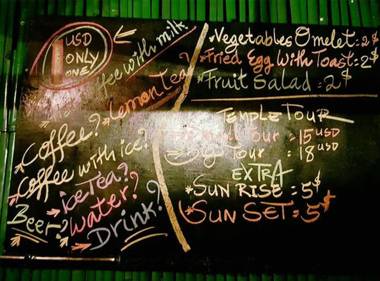 1 USD
ONLY
ONE!
Coffee with milk
Lemon Tea?
Coffee?
Coffee with ice?
iceTea?
Beer?
water?
Drink?
*Vegetables Omelet = 2$
*Fried Egg with Toast = 2$
*Fruit Salad = 2$
TEMPLE TOUR
Tour = 15 USD
Tour = 18 USD
EXTRA
*SUN RISE = 5$
*SUN SET = 5$